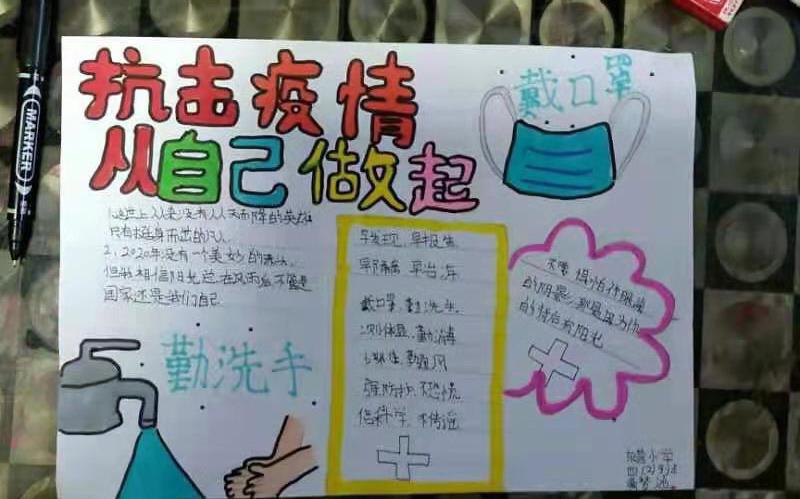 MARKER
抗击疫情
从自己做起
戴口罩
1.这世上从来没有从天而降的英雄
只有挺身而出的凡人。
2.2020年没有一个美妙的
但我相信阳光总在风雨后不管是
国家还是我们自己
早发现,早报告
早隔离,早治疗
戴口罩,勤洗手
测体温,勤消
勤通风
强防护,不恐慌
信科学,不传谣
不要惧怕你眼
的阴影,那是因为你
的背后有阳光
勤洗手
小学
四(2)